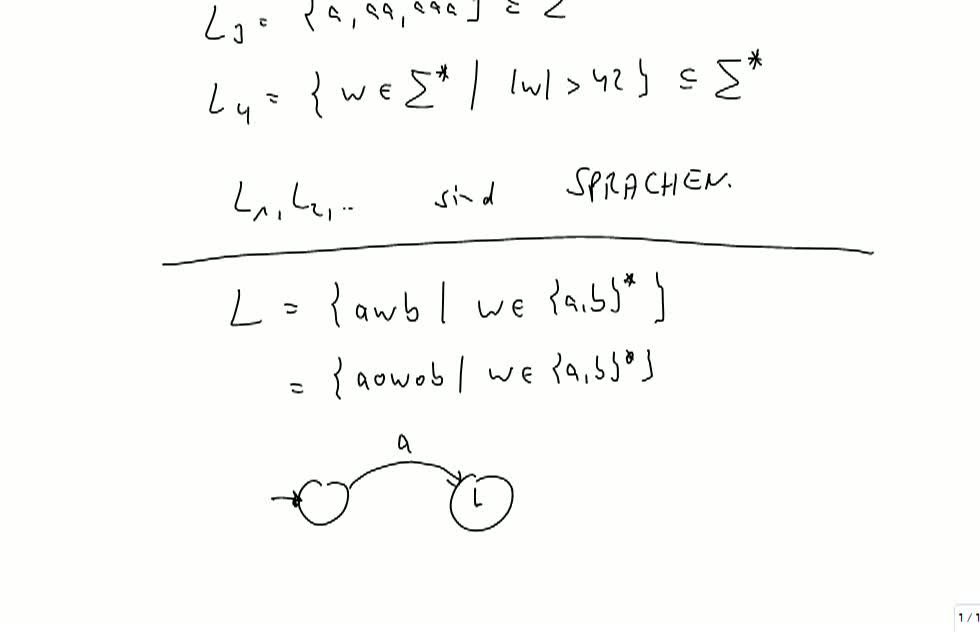 L₃ = {a, aa, aaa} ⊆ Σ
L₄ = { w ∈ Σ* | |w| > 42 } ⊆ Σ*
L₁, L₂, .. sind SPRACHEN.
L = { awb | w ∈ {a,b}* }
= { a∘w∘b | w ∈ {a,b}* }
a
1 / 1